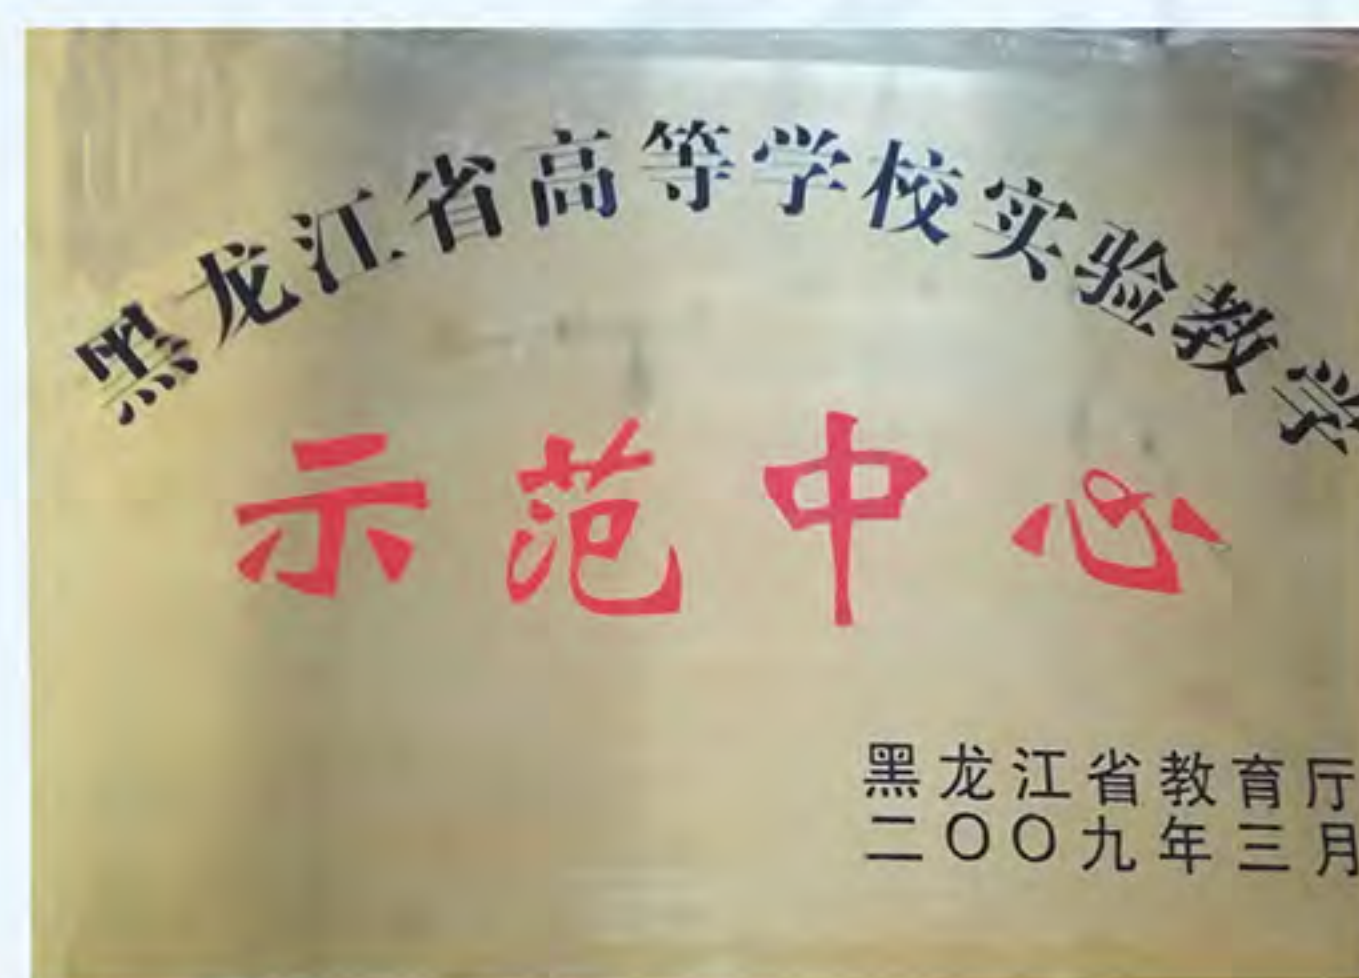 黑龙江省高等学校实验教学
示范中心
黑龙江省教育厅
二〇〇九年三月